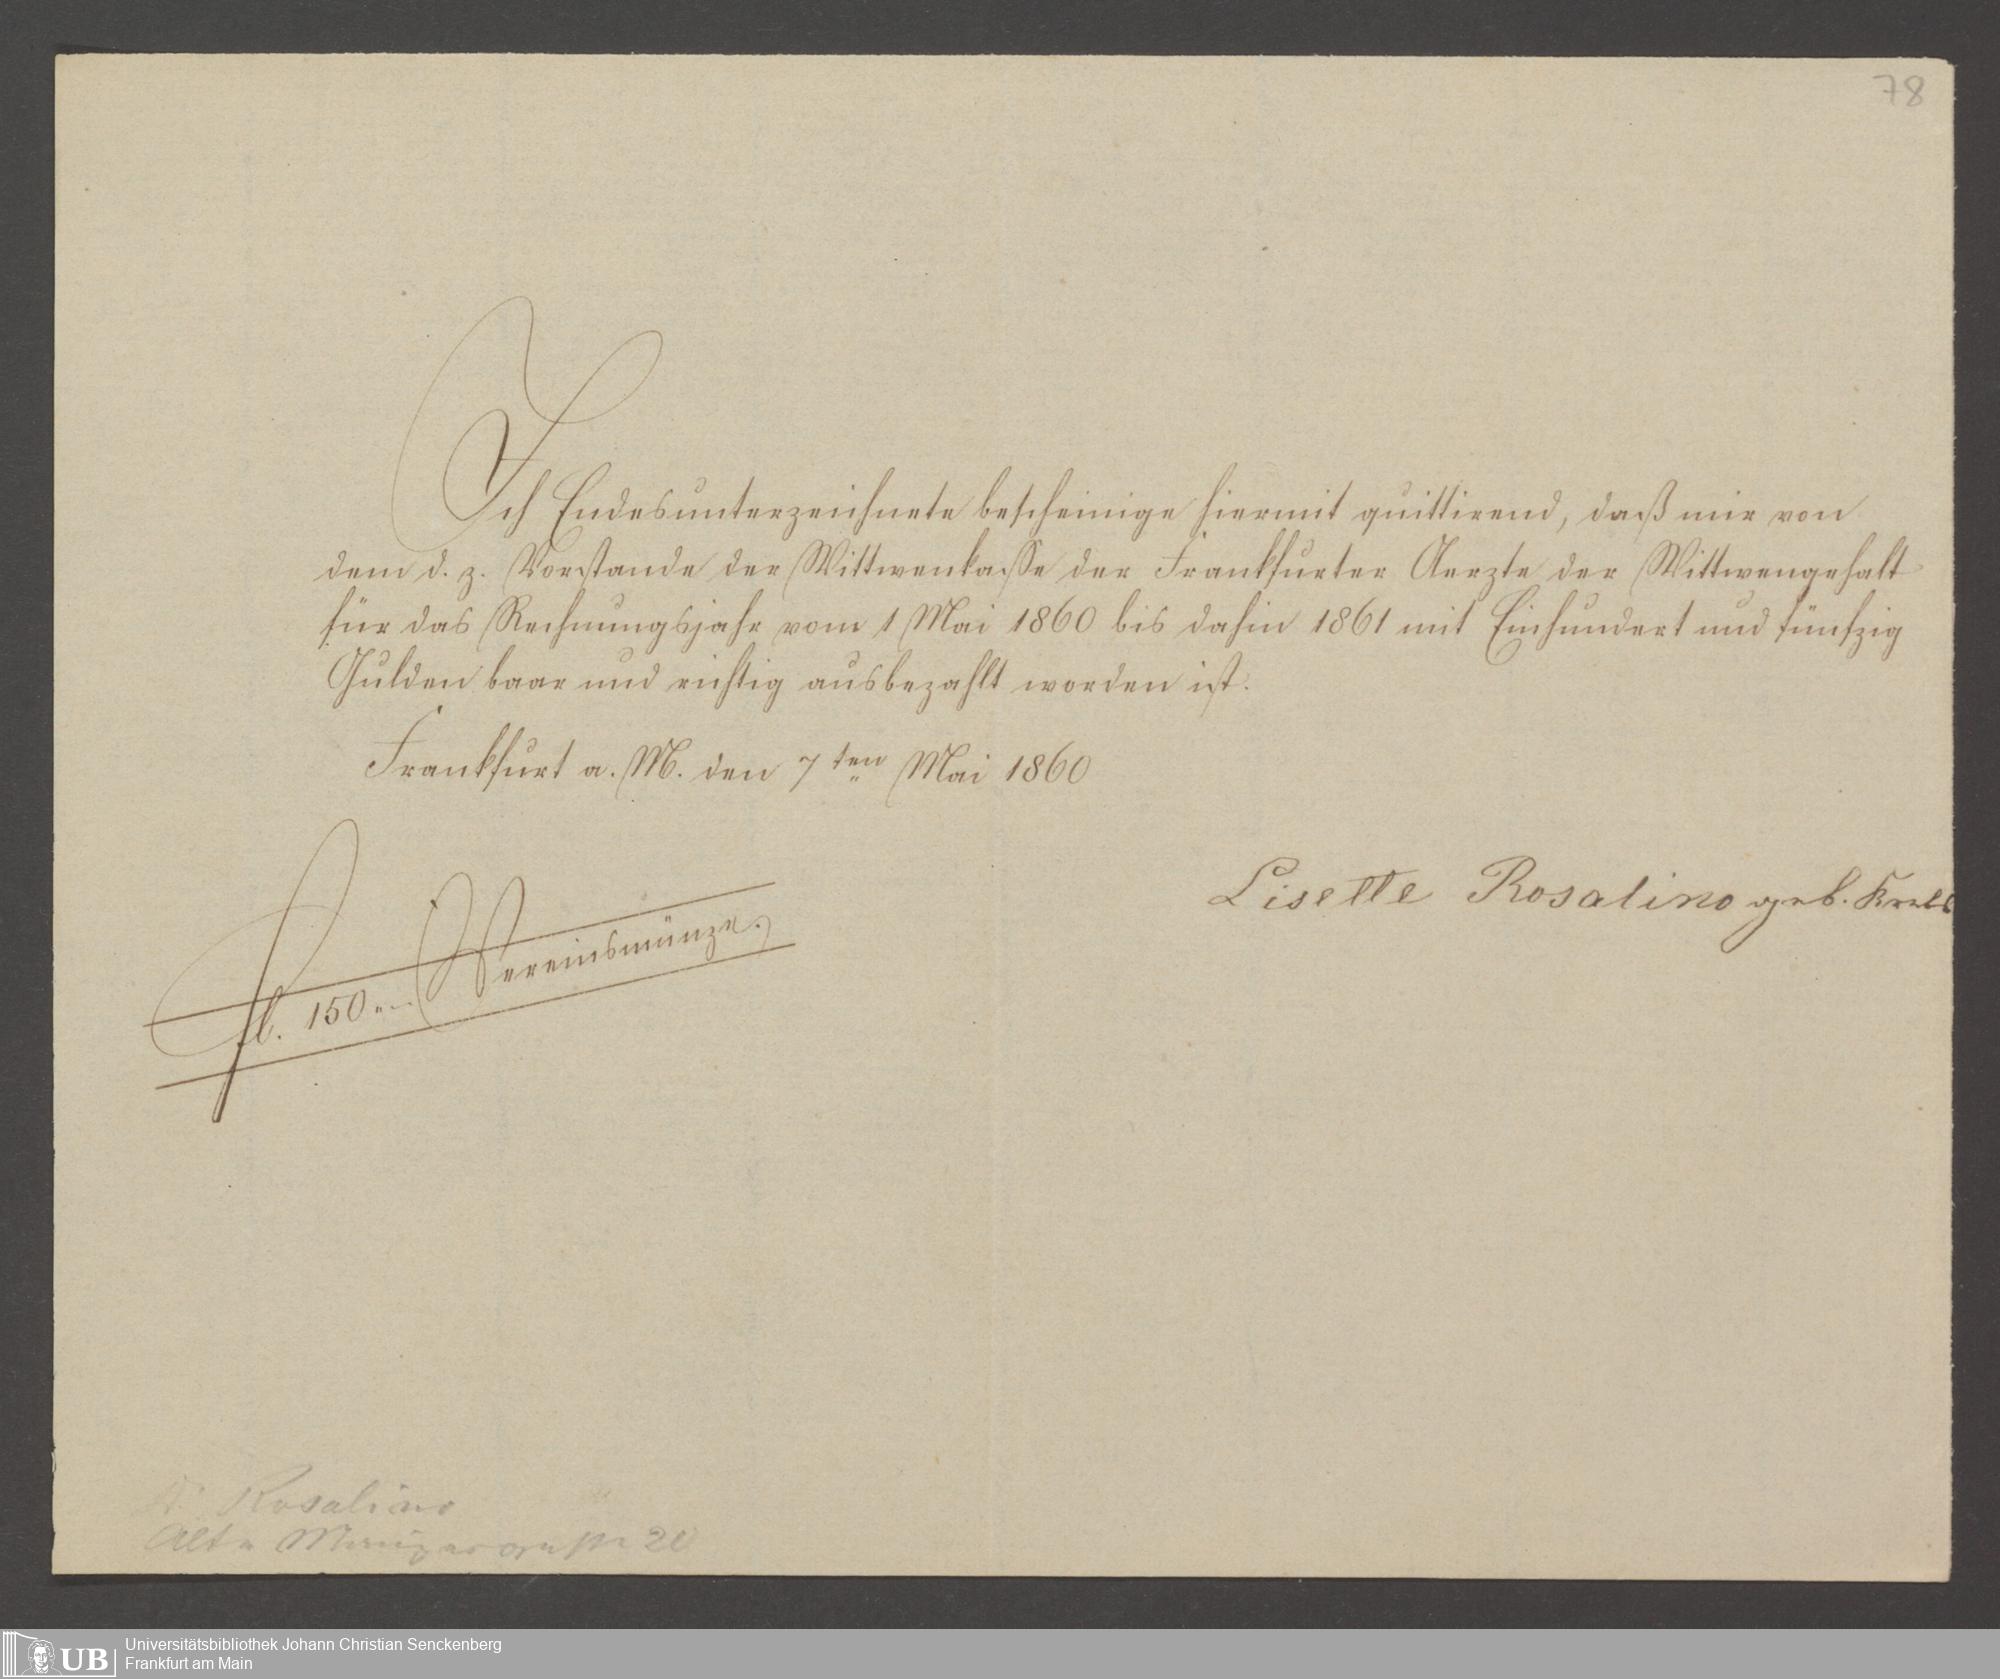 78
Ich Endesunterzeichnete bescheinige hiermit quittirend, daß mir von
dem d. z. Vorstande der Wittwenkasse der Frankfurter Aerzte der Wittwengehalt
für das Rechnungsjahr vom 1 Mai 1860 bis dahin 1861 mit Einhundert und fünfzig
Gulden baar und richtig ausbezahlt worden ist.
Frankfurt a. M. den 7ten Mai 1860
Lisette Rosalino geb.
fl. 150 „ – Vereinsmünze.
Rosalino
Alte Mainzergasse 20
UB Universitätsbibliothek Johann Christian Senckenberg
Frankfurt am Main